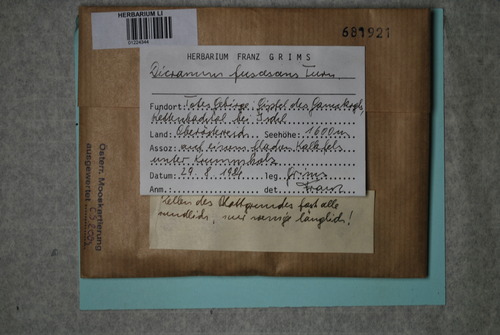 HERBARIUM LI
01224344
681921
HERBARIUM FRANZ GRIMS
Dicranum fuscescens Turn.
Fundort: Totes Gebirge, Gipfel des Gamskogls,
bei Ischl
Land: Oberösterreich Seehöhe: 1600m
Assoz: auf einem Kalkfels
unter Krummholz
Datum: 29. 8. 1984 leg. Grims
Anm.: det. Franz
Zellen des Blattgrundes fast alle
rundlich, nur wenige länglich!
Österr. Mooskartierung
ausgewertet